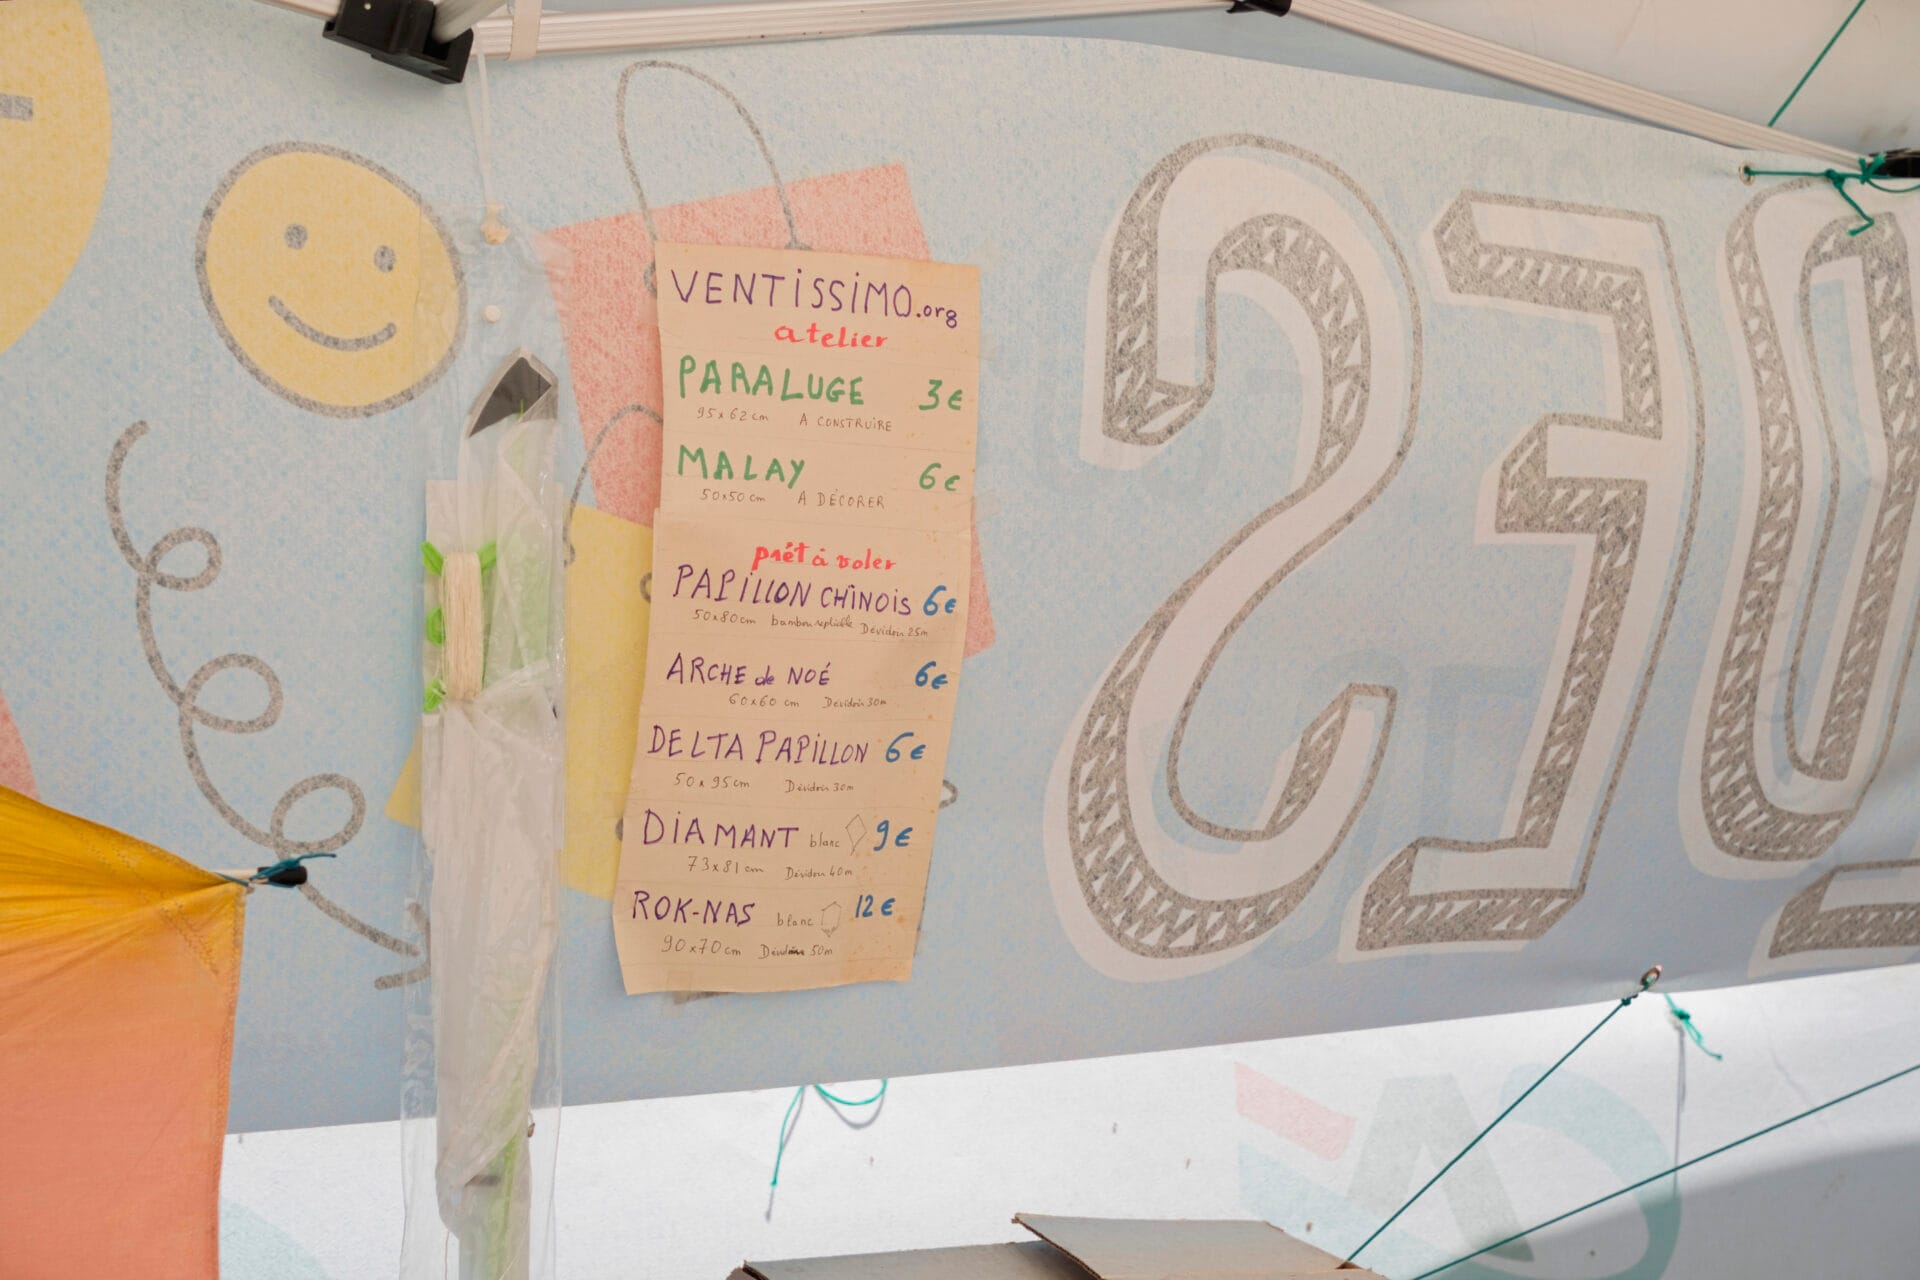 VENTISSIMO.org
atelier
PARALUGE 3€
95x62cm A CONSTRUIRE
MALAY 6€
50x50cm A DÉCORER
prêt à voler
PAPILLON CHINOIS 6€
50x80cm bambou repliable Dévidoir 25m
ARCHE de NOÉ 6€
60x60 cm Dévidoir 30m
DELTA PAPILLON 6€
50x95cm Dévidoir 30m
DIAMANT blanc 9€
73x81cm Dévidoir 40m
ROK-NAS blanc 12€
90x70cm Dévidoir 50m